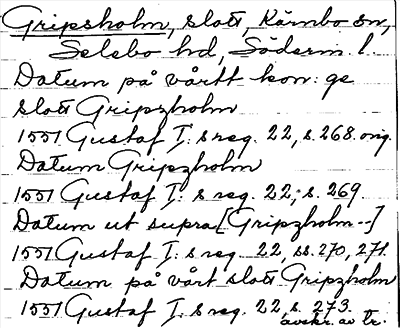 Gripsholm, slott, Kärnbo sn,
Selebo hd, Söderm. l.
Datum på vårtt kon: ge
slott Gripzholm
1551 Gustaf I:s reg. 22, s. 268. orig.
Datum Gripzholm
1551 Gustaf I:s reg. 22, s. 269
Datum ut supra [Gripzholm --]
1551 Gustaf I:s reg. 22, ss. 270, 271.
Datum på vårt slott Gripzholm
1551 Gustaf I:s reg. 22, s. 273.
avskr. av tr.